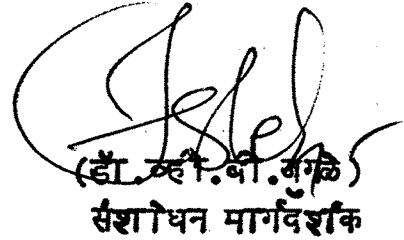 (डॉ. व्ही. बी. जुगळे)
संशोधन मार्गदर्शक